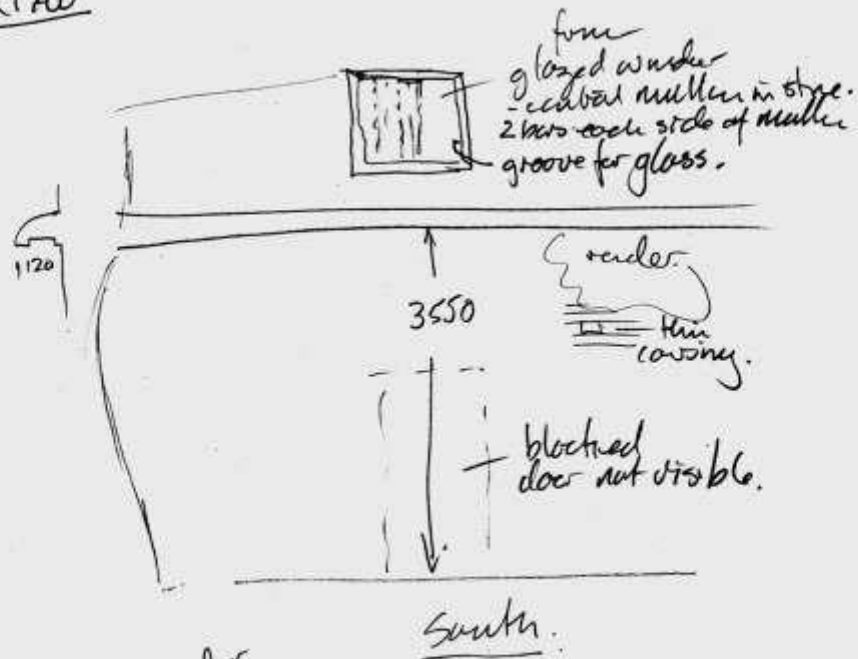 form
glazed window
- central mullion in stone.
2 bars each side of mullion
groove for glass.
120
render.
3550
thin
coursing.
blocked
door not visible.
South.